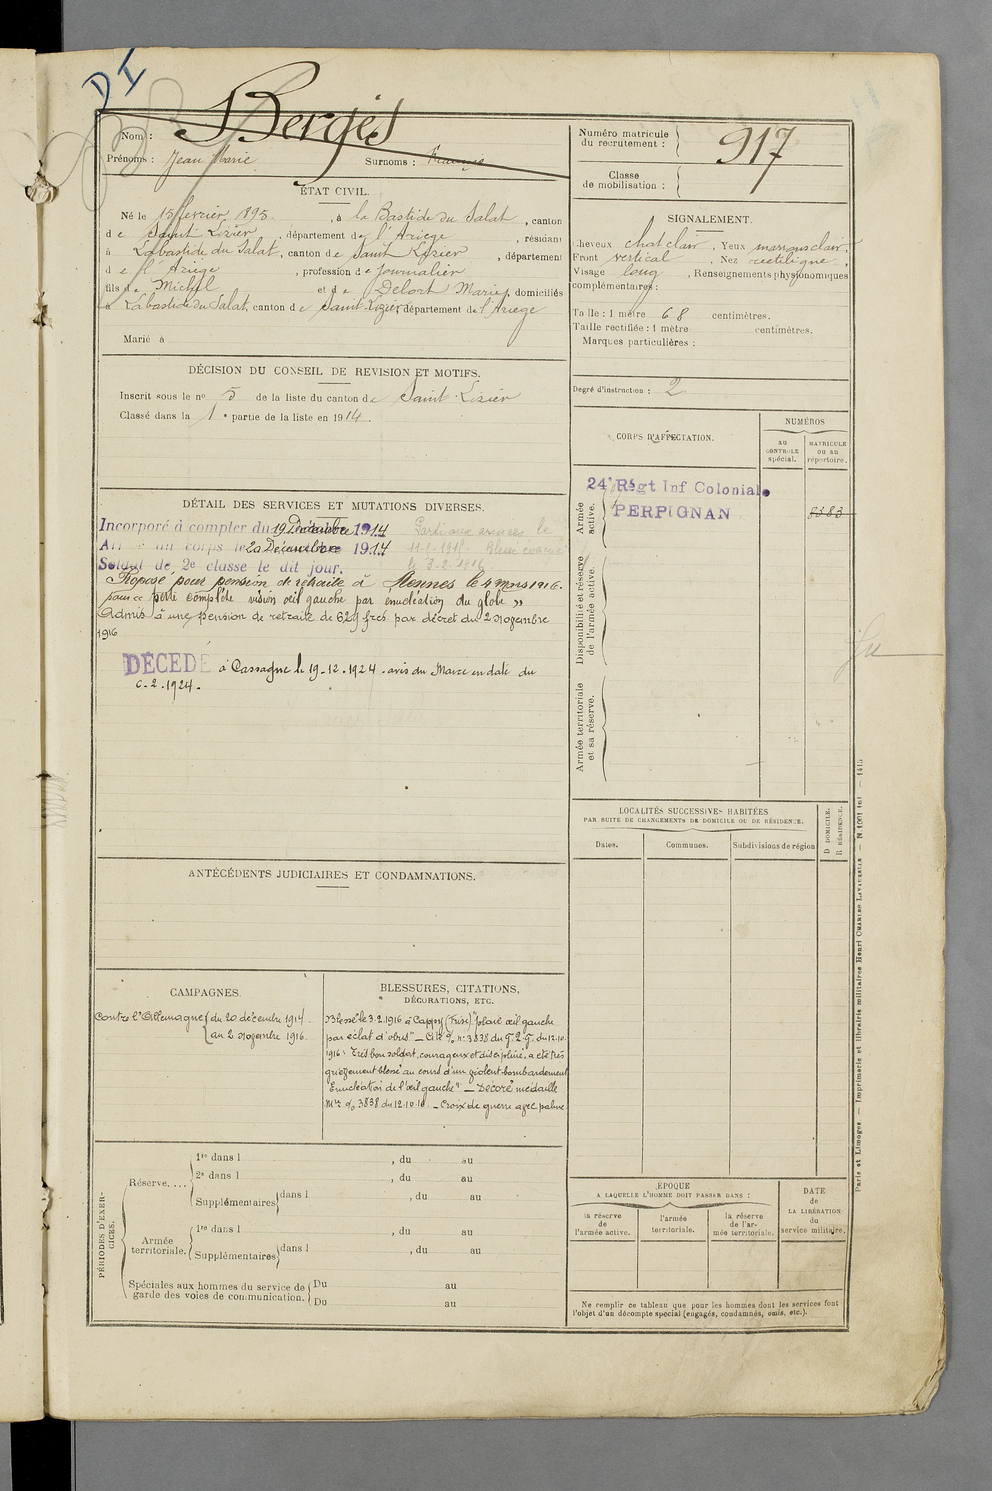 DI
Nom : Bergès
Prénoms : Jean Marie Surnoms : Français
ÉTAT CIVIL.
Né le 15 février 1895 , à la Bastide du Salat , canton
de Saint Lizier , département de l'Ariège , résidant
à Labastide du Salat, canton de Saint Lizier , département
de l'Ariège , profession de Journalier
fils de Michel et de Delort Marie, domiciliés
à Labastide du Salat, canton de Saint Lizier, département de l'Ariège
Marié à
DÉCISION DU CONSEIL DE REVISION ET MOTIFS.
Inscrit sous le no 5 de la liste du canton de Saint-Lizier
Classé dans la 1e partie de la liste en 1914.
DÉTAIL DES SERVICES ET MUTATIONS DIVERSES.
Incorporé à compter du 19 Décembre 1914
Arrivé au corps le 20 Décembre 1914
Soldat de 2e classe le dit jour.
Parti aux armées le
11-1-1916. Blessé évacué
le 3-2-1916
Proposé pour pension de retraite à Rennes le 4 Mars 1916.
pour « perte complète vision œil gauche par énucléation du globe »
Admis à une pension de retraite de 629 frcs par décret du 2 novembre
1916
DÉCÉDÉ à Cassagne le 19-12-1924 - avis du Maire en date du
-2-1924-
ANTÉCÉDENTS JUDICIAIRES ET CONDAMNATIONS.
CAMPAGNES.
Contre l'Allemagne { du 20 décembre 1914
au 2 novembre 1916.
BLESSURES, CITATIONS,
DÉCORATIONS, ETC.
Blessé le 3.2.1916 à Cappy (Frise) "plaie œil gauche
par éclat d'obus" - Cité % n: 3838 du G.Q.G. du 12.10
1916: "Très bon soldat, courageux et discipliné, a été très
grièvement blessé au cours d'un violent bombardement
"Enucléation de l'œil gauche" - Décoré médaille
Mre % 3838 du 12.10.16 - Croix de guerre avec palme.
PÉRIODES D'EXERCICES.
Réserve....
1re dans l , du au
2e dans l , du au
Supplémentaires dans l , du au
Armée territoriale.
1re dans l , du au
Supplémentaires dans l , du au
Spéciales aux hommes du service de garde des voies de communication.
Du au
Du au
Numéro matricule
du recrutement : 917
Classe
de mobilisation :
SIGNALEMENT.
Cheveux chat clair , Yeux marrons clair,
Front vertical , Nez rectiligne ,
Visage long , Renseignements physionomiques
complémentaires :
Taille : 1 mètre 68 centimètres.
Taille rectifiée : 1 mètre centimètres.
Marques particulières :
Degré d'instruction : 2
CORPS D'AFFECTATION.
NUMÉROS
au
CONTROLE
spécial.
MATRICULE
ou au
répertoire.
Armée
active.
24e Régt Inf Coloniale
PERPIGNAN
8383
Disponibilité et réserve
de l'armée active.
Armée territoriale
et sa réserve.
LOCALITÉS SUCCESSIVES HABITÉES
PAR SUITE DE CHANGEMENTS DE DOMICILE OU DE RÉSIDENCE.
Dates.
Communes.
Subdivisions de région
D DOMICILE.
R RÉSIDENCE.
ÉPOQUE
A LAQUELLE L'HOMME DOIT PASSER DANS :
la réserve
de
l'armée active.
l'armée
territoriale.
la réserve
de l'ar-
mée territoriale.
DATE
de
LA LIBÉRATION
du
service militaire.
Ne remplir ce tableau que pour les hommes dont les services font
l'objet d'un décompte spécial (engagés, condamnés, omis, etc.).
Paris et Limoges. — Imprimerie et librairie militaires Henri CHARLES-LAVAUZELLE